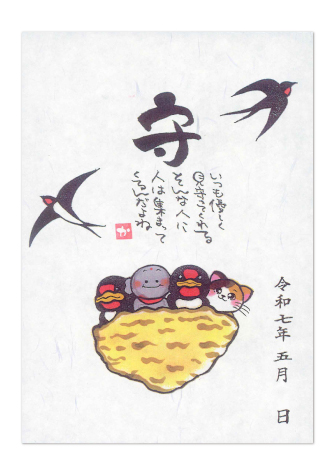 守
いつも優しく
見守ってくれてる
そんな人に
人は集まって
くるんだよね
か
令和七年五月　日